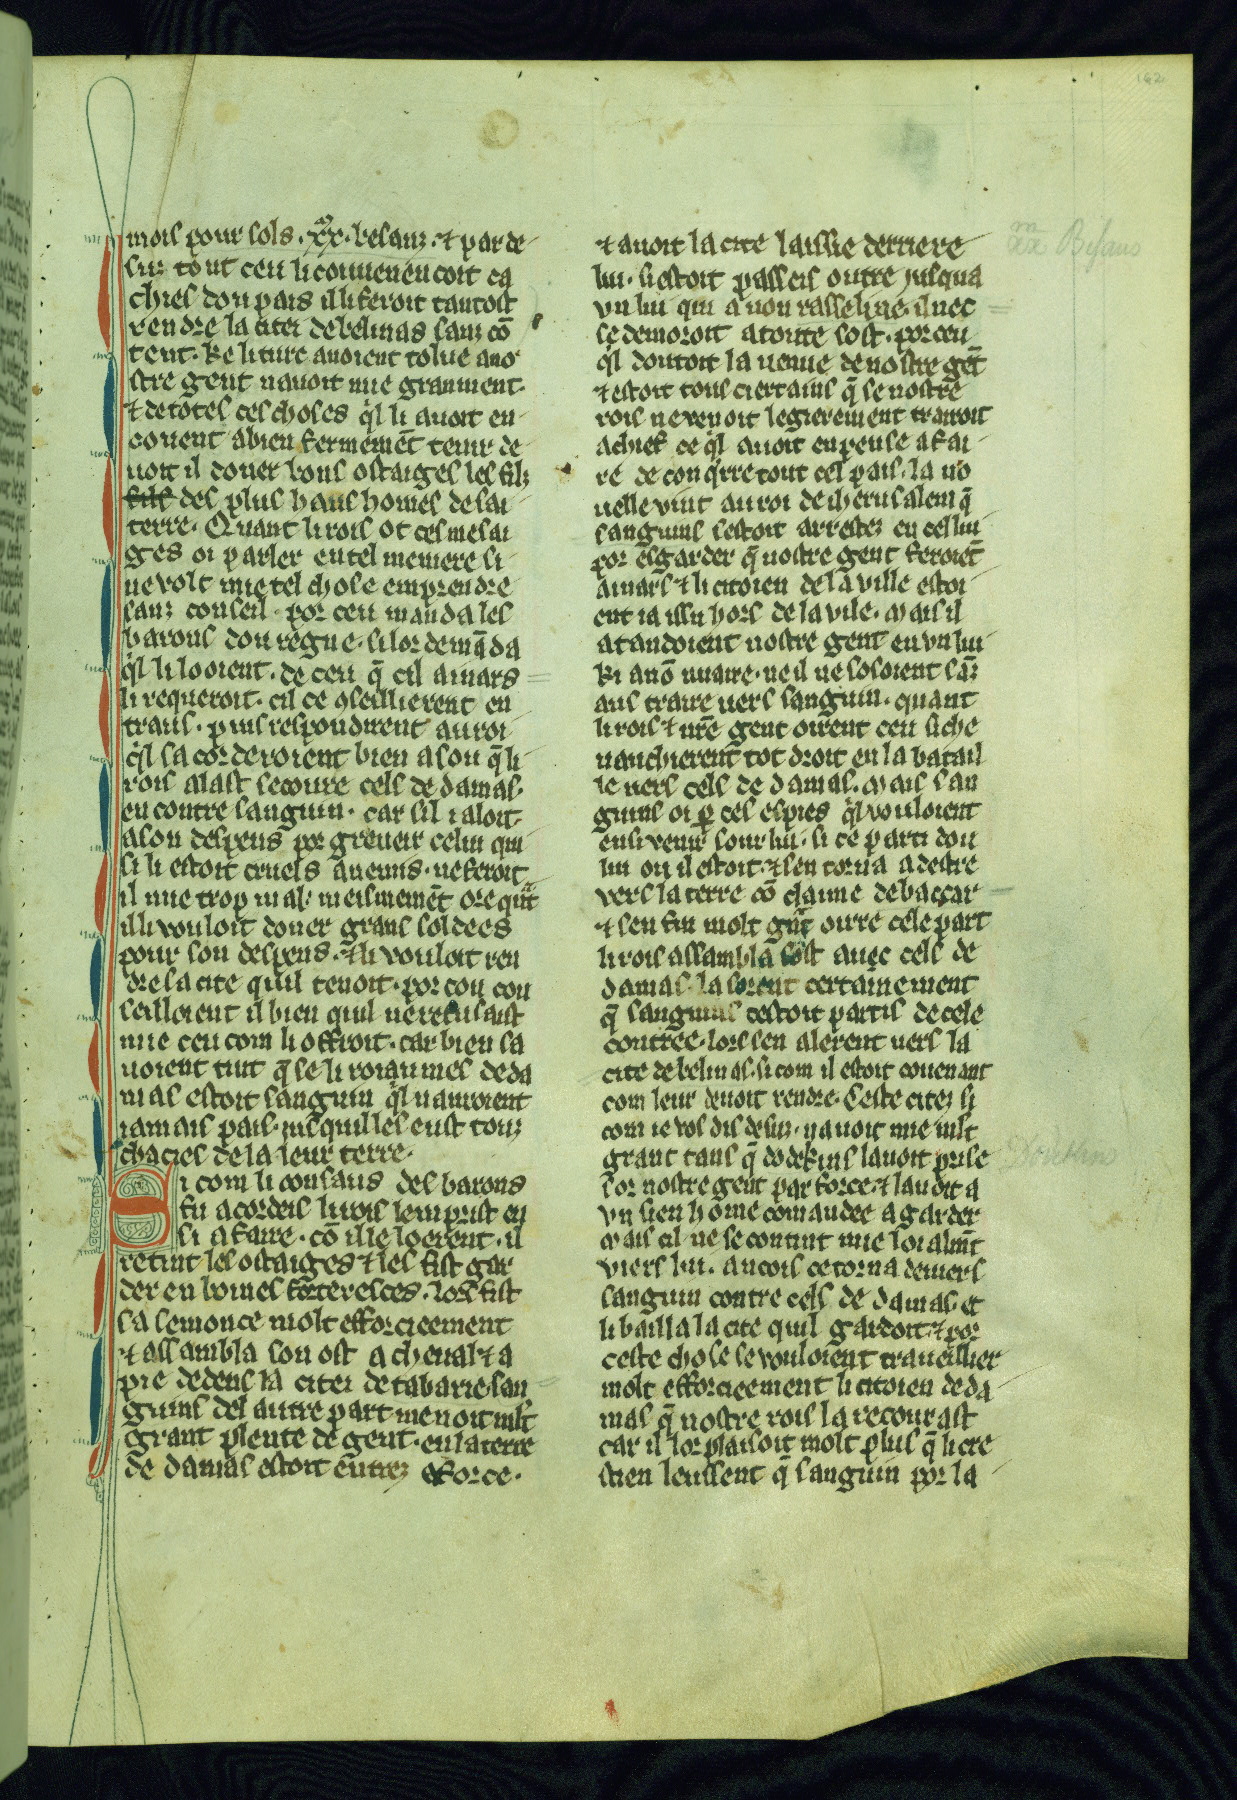 162
mois pour sols · xxᵐ · besanz · ⁊ par de
sur tout ceu li couuenencoit ea
chies dou pais il li feroit tantost
rendre la citei de belinas sanz cō
tent · ke li turc auoient tolue a no
stre gent nauoit mie granment ·
⁊ de totes ces choses q̄l li auoit en
couent a bien fermemēt tenir de
uoit il doner bons ostaiges les filz
fils des plus haus homes de sai
terre · Quant li rois ot ces mesai
ges oi parler en tel meniere si
ne volt mie tel chose emprendre
sanz conseil · por ceu manda les
barons dou regne · si lor demāda
q̄l li looient · de ceu q̄ cil ainars
li requeroit · cil ce 9seillierent en
traus · puis respondirent au roi
q̄l sacorderoient bien a sou q̄ li
rois alast secoure cels de damas ·
en contre sanguin · car sil i aloit
a son despens por greueir celui qui
si li estoit cruels anemis · ne feroit
il mie trop mal · meismemēt ore quāt
il li vouloit doner grans soldees
pour son despens · ⁊ li vouloit ren
dre la cite quil tenoit · por cou con
seilloient il bien quil ne refusast
mie ceu com li offroit · car bien sa
uoient tuit q̄ se li roiaumes de da
mas estoit sanguin q̄l nauroient
iamais pais · iusquil les eust touz
chacies de la leur terre ·
Si com li consaus des barons
fu acordeis li rois lemprist en
si a faire · cō il le loerent · il
retint les ostaiges ⁊ les fist gar
der en bones forteresces · Lors fist
sa semonce molt efforcieement
⁊ assambla son ost a cheual ⁊ a
pie dedens la citei de tabarie · san
guins del autre part menoit mlt
grant plente de gent · en la terre
de damas estoit entrez a force ·
⁊ auoit la cite laissie derriere
lui · si estoit passeis outre iusqua
vn liu qui a non rasseline · iluec
se demoroit a toute sost · por ceu
q̄l doutoit la uenue de nostre gēt
⁊ estoit tous ciertains q̄ se nostre
rois ne venoit legierement trairoit
a chief ce q̄l auoit en pense a fai
re de conq̄rre tout cel pais · la no
uelle vint au roi de iherusalem q̄
sanguins sestoit arrestez en cel liu
por esgarder q̄ nostre gent feroiēt
ainars ⁊ li citoien de la ville estoi
ent ia issu hors de la vile · mais il
atandoient nostre gent en vn liu
ki a nō nuaire · ne il ne sosoient sāz
aus traire uers sanguin · quant
li rois ⁊ nrē gent oirent ceu si che
uauchierent tot droit en la batail
le vers cels de damas · mais san
guins oi p̄ ces espies q̄l vouloient
ensi venir sour lui · si ce parti dou
liu ou il estoit · ⁊ sen torna a destre
vers la terre cō claime de baccar
⁊ sen fui molt grāt oirre cele part
li rois assambla sost auec cels de
damas · la sorent certainement
q̄ sanguins cestoit partis de cele
contree · lors sen alerent uers la
cite de belinas · si com il estoit couenant
com leur deuoit rendre · Ceste citez si
com ie vos dis desuz · nauoit mie mlt
grant tans q̄ dodekins lauoit prise
sor nostre gent par force · ⁊ laudit a
vn sien home comandee a garder
mais cil ne se contint mie loialmēt
viers lui · ancois ce torna deuers
sanguin contre cels de damas · et
li bailla la cite quil gardoit · ⁊ por
ceste chose se vouloient traueillier
molt efforcieement li citoien de da
mas q̄ nostre rois la recourast
car il lor plaisoit molt plus q̄ li cre
stien leussent q̄ sanguin por la
m
xx Bisans